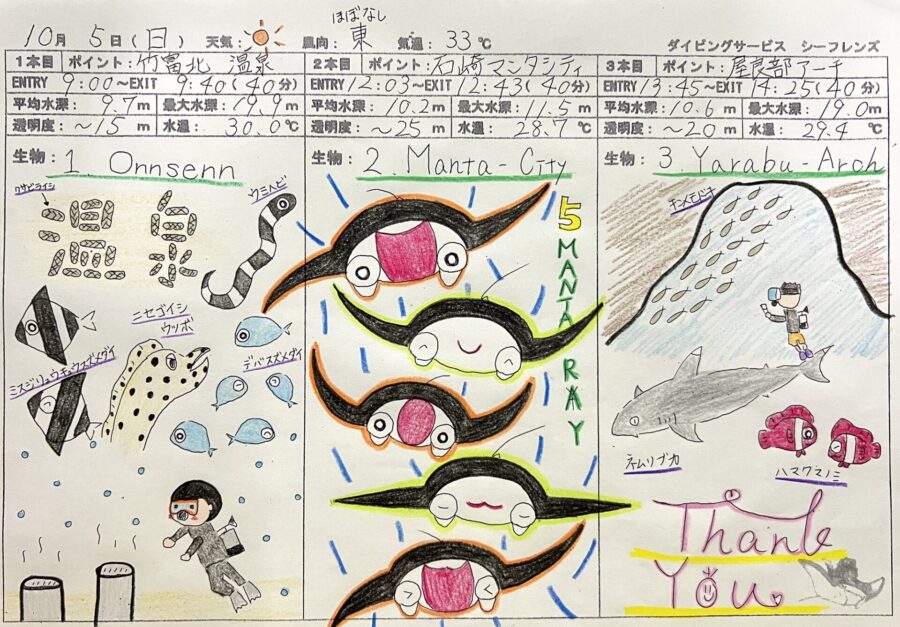 ほぼなし
10月 5日(日) 天気: 風向: 東 気温: 33℃
ダイビングサービス シーフレンズ
1本目 ポイント: 竹富北 温泉
ENTRY 9:00～EXIT 9:40(40分)
平均水深: 9.7m 最大水深: 19.9m
透明度: ～15 m 水温: 30.0℃
生物: 1. Onnsenn
クサビライシ
温泉
ウミヘビ
ニセゴイシ
ウツボ
デバスズメダイ
ミスジリュウキュウスズメダイ
2本目 ポイント: 石崎マンタシティ
ENTRY 12:03～EXIT 12:43(40分)
平均水深: 10.2m 最大水深: 11.5m
透明度: ～25 m 水温: 28.7℃
生物: 2. Manta-City
5 MANTA RAY
3本目 ポイント: 屋良部アーチ
ENTRY 13:45～EXIT 14:25(40分)
平均水深: 10.6m 最大水深: 19.0m
透明度: ～20m 水温: 29.4℃
生物: 3. Yarabu-Arch
キンメモドキ
ネムリブカ
ハマクマノミ
Thank
You